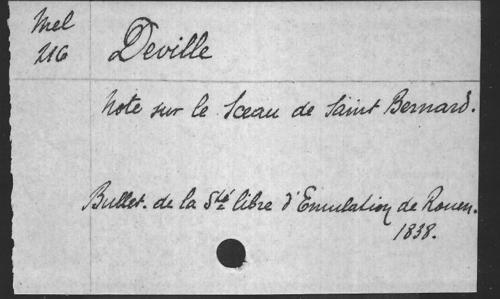 Mel
216
Deville
Note sur le Sceau de Saint Bernard.
Bullet. de la Sté libre d'Emulation de Rouen.
1838.